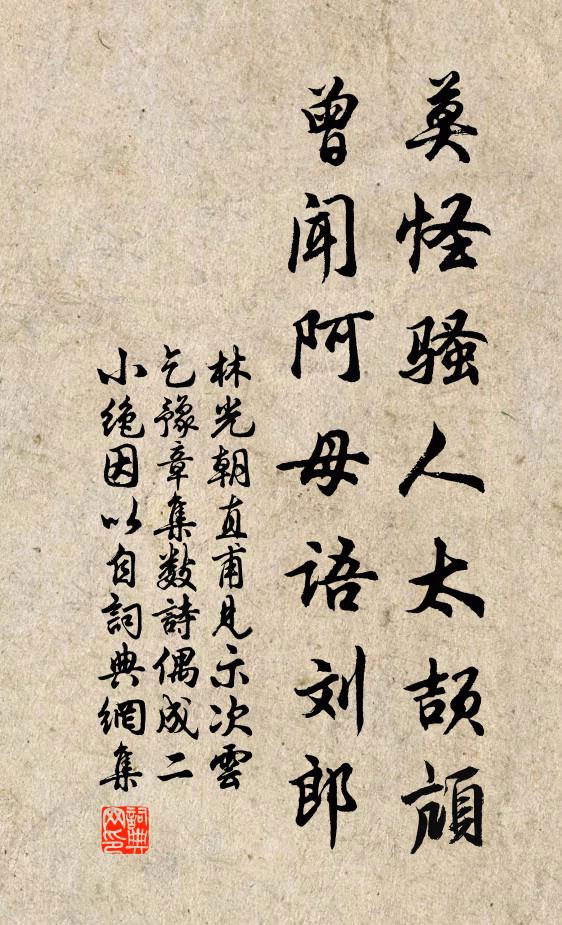 莫怪骚人太颉颃
曾闻阿母语刘郎
林光朝直甫见示次雲
乞豫章集数詩偶成二
小绝因以自詞典網集
詞典网印